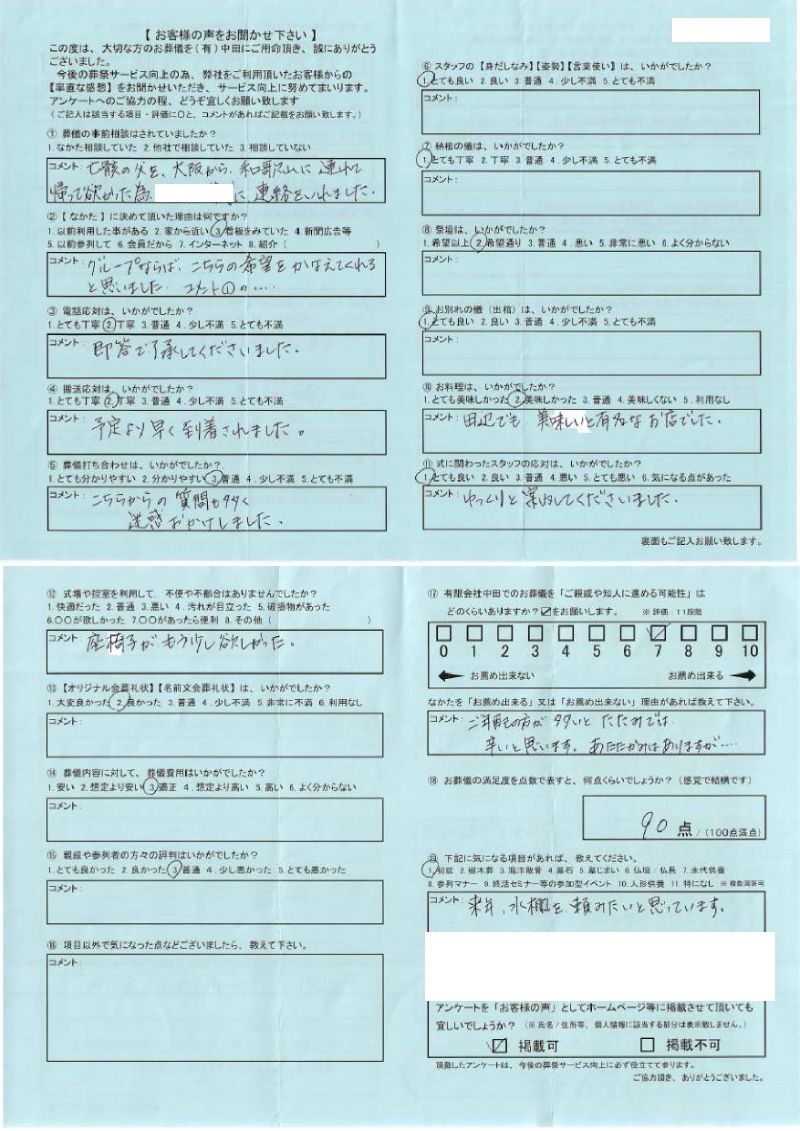 【 お客様の声をお聞かせ下さい 】
この度は、大切な方のお葬儀を(有)中田にご用命頂き、誠にありがとう
ございました。
今後の葬祭サービス向上の為、弊社をご利用頂いたお客様からの
【率直な感想】をお聞かせいただき、サービス向上に努めてまいります。
アンケートへのご協力の程、どうぞ宜しくお願い致します
(ご記入は該当する項目・評価に○と、コメントがあればご記載をお願い致します。)
① 葬儀の事前相談はされていましたか?
1.なかた相談していた 2.他社で相談していた 3.相談していない
コメント: 亡骸の父を、大阪から、和歌山に連れて
帰って欲かった為、 に連絡をいれました。
②【なかた】に決めて頂いた理由は何ですか?
1.以前利用した事がある 2.家から近い 3.看板をみていた 4.新聞広告等
5.以前参列して 6.会員だから 7.インターネット 8.紹介( )
コメント: グループならば、こちらの希望をかなえてくれる
と思いました。コメント①の・・・・
③ 電話応対は、いかがでしたか?
1.とても丁寧 2.丁寧 3.普通 4.少し不満 5.とても不満
コメント: 即答で了承してくださいました。
④ 搬送応対は、いかがでしたか?
1.とても丁寧 2.丁寧 3.普通 4.少し不満 5.とても不満
コメント: 予定より早く到着されました。
⑤ 葬儀打ち合わせは、いかがでしたか?
1.とても分かりやすい 2.分かりやすい 3.普通 4.少し不満 5.とても不満
コメント: こちらからの質問も多く
迷惑おかけしました。
⑥ スタッフの【身だしなみ】【姿勢】【言葉使い】は、いかがでしたか?
1.とても良い 2.良い 3.普通 4.少し不満 5.とても不満
コメント:
⑦ 納棺の儀は、いかがでしたか?
1.とても丁寧 2.丁寧 3.普通 4.少し不満 5.とても不満
コメント:
⑧ 祭壇は、いかがでしたか?
1.希望以上 2.希望通り 3.普通 4.悪い 5.非常に悪い 6.よく分からない
コメント:
⑨ お別れの儀(出棺)は、いかがでしたか?
1.とても良い 2.良い 3.普通 4.少し不満 5.とても不満
コメント:
⑩ お料理は、いかがでしたか?
1.とても美味しかった 2.美味しかった 3.普通 4.美味しくない 5.利用なし
コメント: 田辺でも、美味しいと有名なお店でした。
⑪ 式に関わったスタッフの応対は、いかがでしたか?
1.とても良い 2.良い 3.普通 4.悪い 5.とても悪い 6.気になる点があった
コメント: ゆっくりと案内してくださいました。
裏面もご記入お願い致します。
⑫ 式場や控室を利用して、不便や不都合はありませんでしたか?
1.快適だった 2.普通 3.悪い 4.汚れが目立った 5.破損物があった
6.〇〇が欲しかった 7.〇〇があったら便利 8.その他( )
コメント: 座椅子がもう少し欲しかった。
⑬【オリジナル会葬礼状】【名前文会葬礼状】は、いかがでしたか?
1.大変良かった 2.良かった 3.普通 4.少し不満 5.非常に不満 6.利用なし
コメント:
⑭ 葬儀内容に対して、葬儀費用はいかがでしたか?
1.安い 2.想定より安い 3.適正 4.想定より高い 5.高い 6.よく分からない
コメント:
⑮ 親戚や参列者の方々の評判はいかがでしたか?
1.とても良かった 2.良かった 3.普通 4.少し悪かった 5.とても悪かった
コメント:
⑯ 項目以外で気になった点などございましたら、教えて下さい。
コメント:
⑰ 有限会社中田でのお葬儀を「ご親戚や知人に進める可能性」は
どのくらいありますか?☑をお願いします。 ※評価:11段階
0 1 2 3 4 5 6 7 8 9 10
お薦め出来ない お薦め出来る
なかたを「お薦め出来る」又は「お薦め出来ない」理由があれば教えて下さい。
コメント: ご年配の方が多いとたたみでは、
辛いと思います。あたたかみはありますが・・・・
⑱ お葬儀の満足度を点数で表すと、何点くらいでしょうか?(感覚で結構です)
90点/(100点満点)
⑲ 下記に気になる項目があれば、教えてください。
1.初盆 2.樹木葬 3.海洋散骨 4.墓石 5.墓じまい 6.仏壇/仏具 7.永代供養
8.参列マナー 9.終活セミナー等の参加型イベント 10.人形供養 11.特になし ※複数回答可
コメント: 来年、水棚を頼みたいと思っています。
アンケートを「お客様の声」としてホームページ等に掲載させて頂いても
宜しいでしょうか?(※氏名/住所等、個人情報に該当する部分は表示致しません。)
☑ 掲載可 □ 掲載不可
頂戴したアンケートは、今後の葬祭サービス向上に必ず役立てて参ります。
ご協力頂き、ありがとうございました。